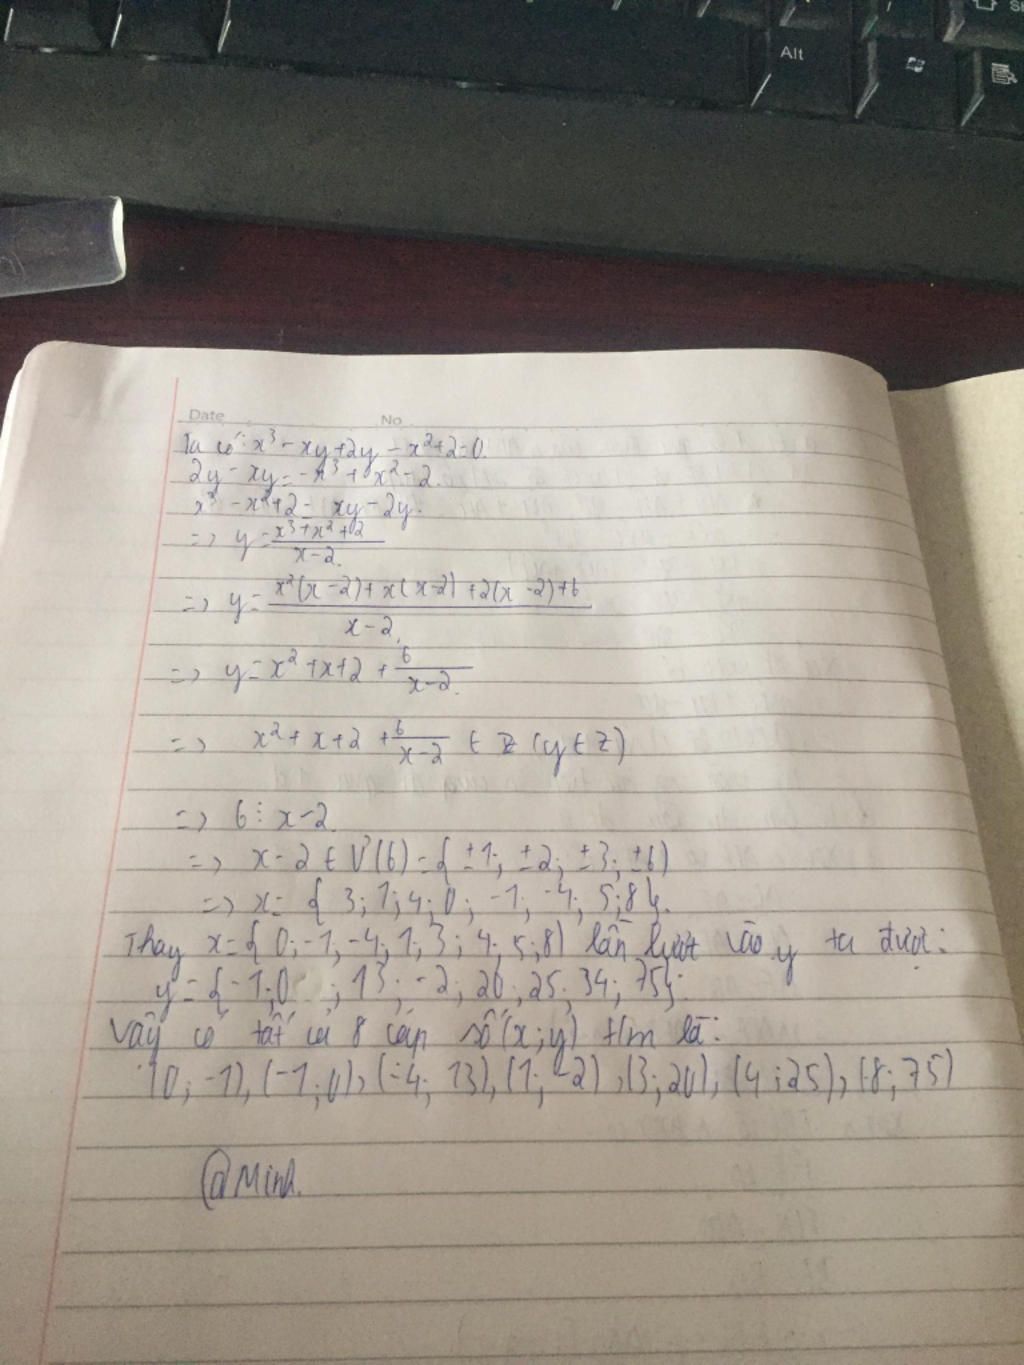 Alt
Date No
Ta có: x³ - xy + 2y - x² + 2 = 0.
2y - xy = -x³ + x² - 2.
x³ - x² + 2 = xy - 2y.
=> y = \frac{x³ + x² + 2}{x - 2}
=> y = \frac{x²(x - 2) + x(x - 2) + 2(x - 2) + 6}{x - 2}
=> y = x² + x + 2 + \frac{6}{x - 2}
=> x² + x + 2 + \frac{6}{x - 2} ∈ Z (y ∈ Z)
=> 6 ⋮ x - 2.
=> x - 2 ∈ Ư(6) = { ±1; ±2; ±3; ±6}
=> x = { 3; 1; 4; 0; -1; -4; 5; 8}.
Thay x = { 0; -1; -4; 1; 3; 4; 5; 8} lần lượt vào y ta được:
y = {-1; 0 ; 13; -2; 20; 25; 34; 75}.
Vậy có tất cả 8 cặp số (x; y) tìm là:
(0; -1), (-1; 0), (-4; 13), (1; -2), (3; 20), (4; 25), (8; 75)
@Minh.